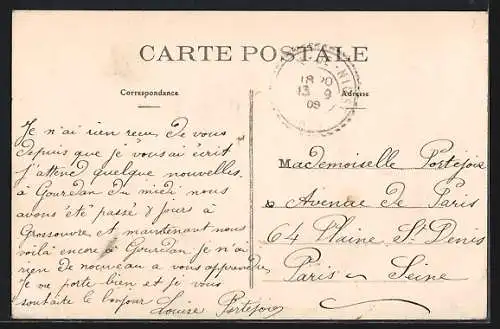 CARTE POSTALE
Correspondance
Adresse
18 20
13 9
09
Je n'ai rien recu de vous
depuis que je vous ai écrit
j'attend quelque nouvelles.
à Gourdan du midi nous
avons été passé 8 jours à
Grossouvre et maintenant nous
voilà encore à Gourdan je n'ai
rien de nouveau a vous apprendre
je me porte bien et je vous
souhaite le bonjour Louise Portejoie
Mademoiselle Portejoie
Avenue de Paris
64 Plaine St Denis
Paris Seine